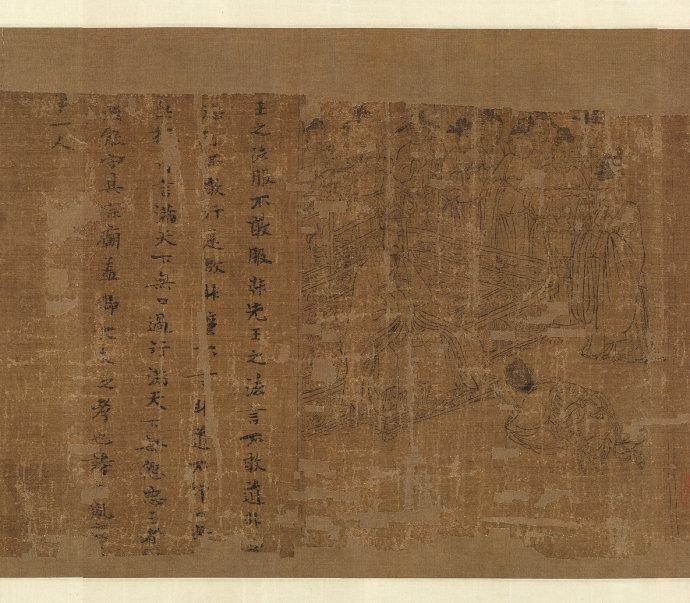 王之法服不敢服非先王之法言不敢道非
行不敢行是故非道不行口無
擇言滿天下無口過行滿天下無怨惡三者
能守其宗廟蓋卿大夫之孝也詩夙
事一人